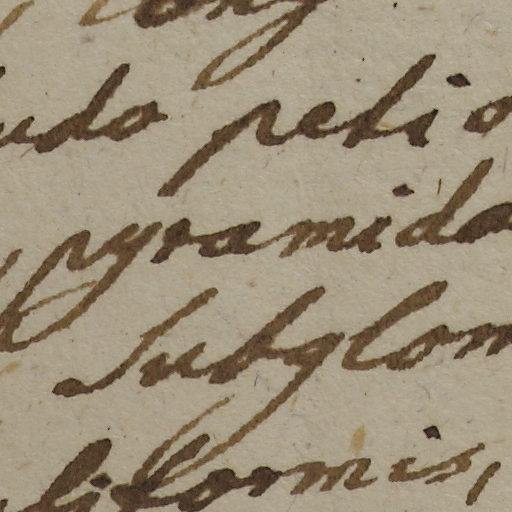 udo petio
pyramida
Subglom
liformis,